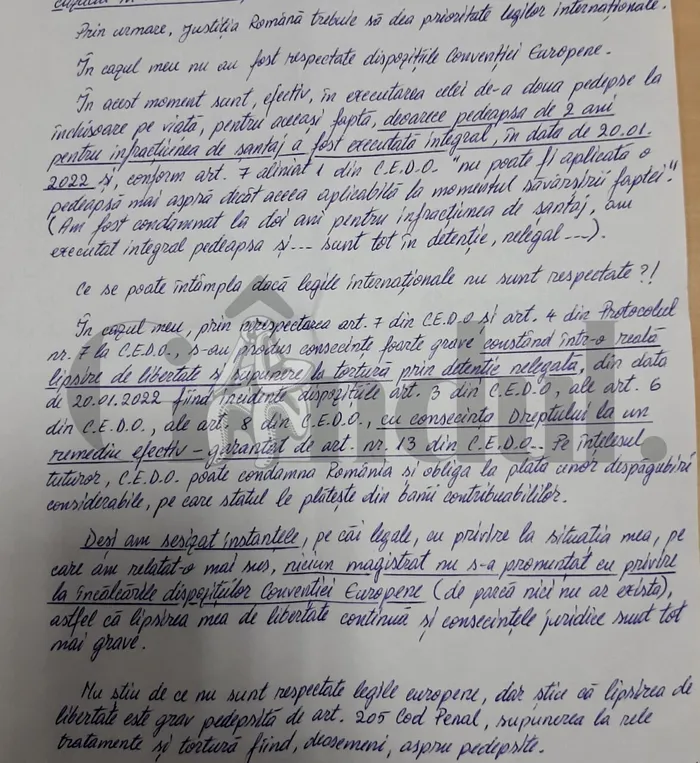 Prin urmare, Justiția Română trebuie să dea prioritate legilor internaționale.
În cazul meu nu au fost respectate dispozițiile Convenției Europene.
În acest moment sunt, efectiv, în executarea celei de-a doua pedepse la
închisoare pe viață, pentru aceeași faptă, deoarece pedeapsa de 2 ani
pentru infracțiunea de șantaj a fost executată integral, în data de 20.01.
2022 și, conform art. 7 aliniat 1 din C.E.D.O. "nu poate fi aplicată o
pedeapsă mai aspră decât aceea aplicabilă la momentul săvârșirii faptei".
(Am fost condamnat la doi ani pentru infracțiunea de șantaj, am
executat integral pedeapsa și... sunt tot în detenție, nelegal ...).
Ce se poate întâmpla dacă legile internaționale nu sunt respectate?!
În cazul meu, prin nerespectarea art. 7 din C.E.D.O și art. 4 din Protocolul
nr. 7 la C.E.D.O., s-au produs consecințe foarte grave constând într-o reală
lipsire de libertate și supunere la tortură prin detenție nelegală, din data
de 20.01.2022 fiind incidente dispozițiile art. 3 din C.E.D.O., ale art. 6
din C.E.D.O., ale art. 8 din C.E.D.O., cu consecința Dreptului la un
remediu efectiv – garantat de art. nr. 13 din C.E.D.O.. Pe înțelesul
tuturor, C.E.D.O. poate condamna România și obliga la plata unor despăgubiri
considerabile, pe care statul le plătește din banii contribuabililor.
Gândul.
Deși am sesizat instanțele, pe căi legale, cu privire la situația mea, pe
care am relatat-o mai sus, niciun magistrat nu s-a pronunțat cu privire
la încălcările dispozițiilor Convenției Europene (de parcă nici nu ar exista),
astfel că lipsirea mea de libertate continuă și consecințele juridice sunt tot
mai grave.
Nu știu de ce nu sunt respectate legile europene, dar știu că lipsirea de
libertate este grav pedepsită de art. 205 Cod Penal, supunerea la rele
tratamente și tortură fiind, deasemeni, aspru pedepsite.